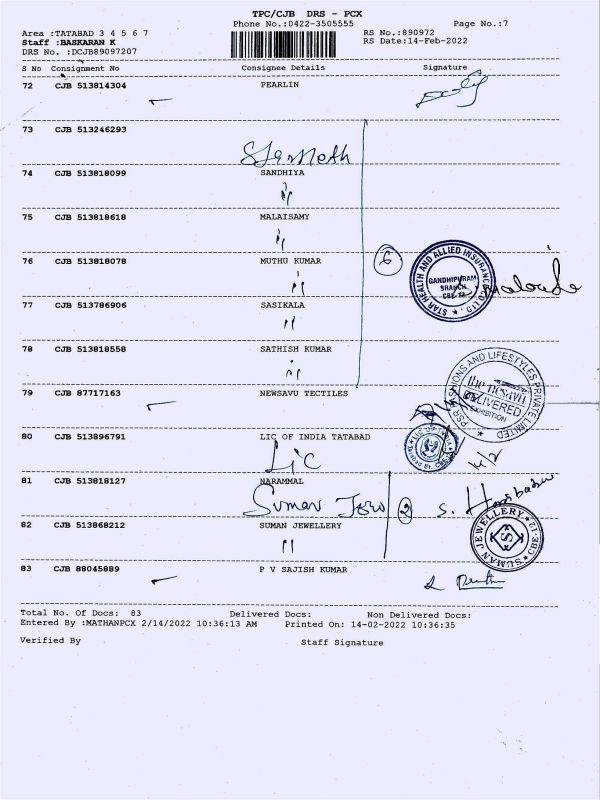 TPC/CJB DRS - PCX
Phone No.:0422-3505555
Page No.:7
Area :TATABAD 3 4 5 6 7
RS No.:890972
Staff :BASKARAN K
RS Date:14-Feb-2022
DRS No. :DCJB89097207
S No Consignment No Consignee Details Signature
72 CJB 513814304 PEARLIN
73 CJB 513246293
74 CJB 513818099 SANDHIYA
75 CJB 513818618 MALAISAMY
76 CJB 513818078 MUTHU KUMAR
6
STAR HEALTH AND ALLIED INSURANCE CO LTD
GANDHIPURAM
BRANCH
CBE-12
77 CJB 513786906 SASIKALA
78 CJB 513818558 SATHISH KUMAR
79 CJB 87717163 NEWSAVU TECTILES
FASHIONS AND LIFESTYLES PRIVATE LIMITED
DELIVERED
EXHIBITION
80 CJB 513896791 LIC OF INDIA TATABAD
LIC
81 CJB 513818127 NARAMMAL
Suman
2
S.
82 CJB 513868212 SUMAN JEWELLERY
SUMAN JEWELLERY CBE-12
83 CJB 88045889 P V SAJISH KUMAR
Total No. Of Docs: 83 Delivered Docs: Non Delivered Docs:
Entered By :MATHANPCX 2/14/2022 10:36:13 AM Printed On: 14-02-2022 10:36:35
Verified By Staff Signature